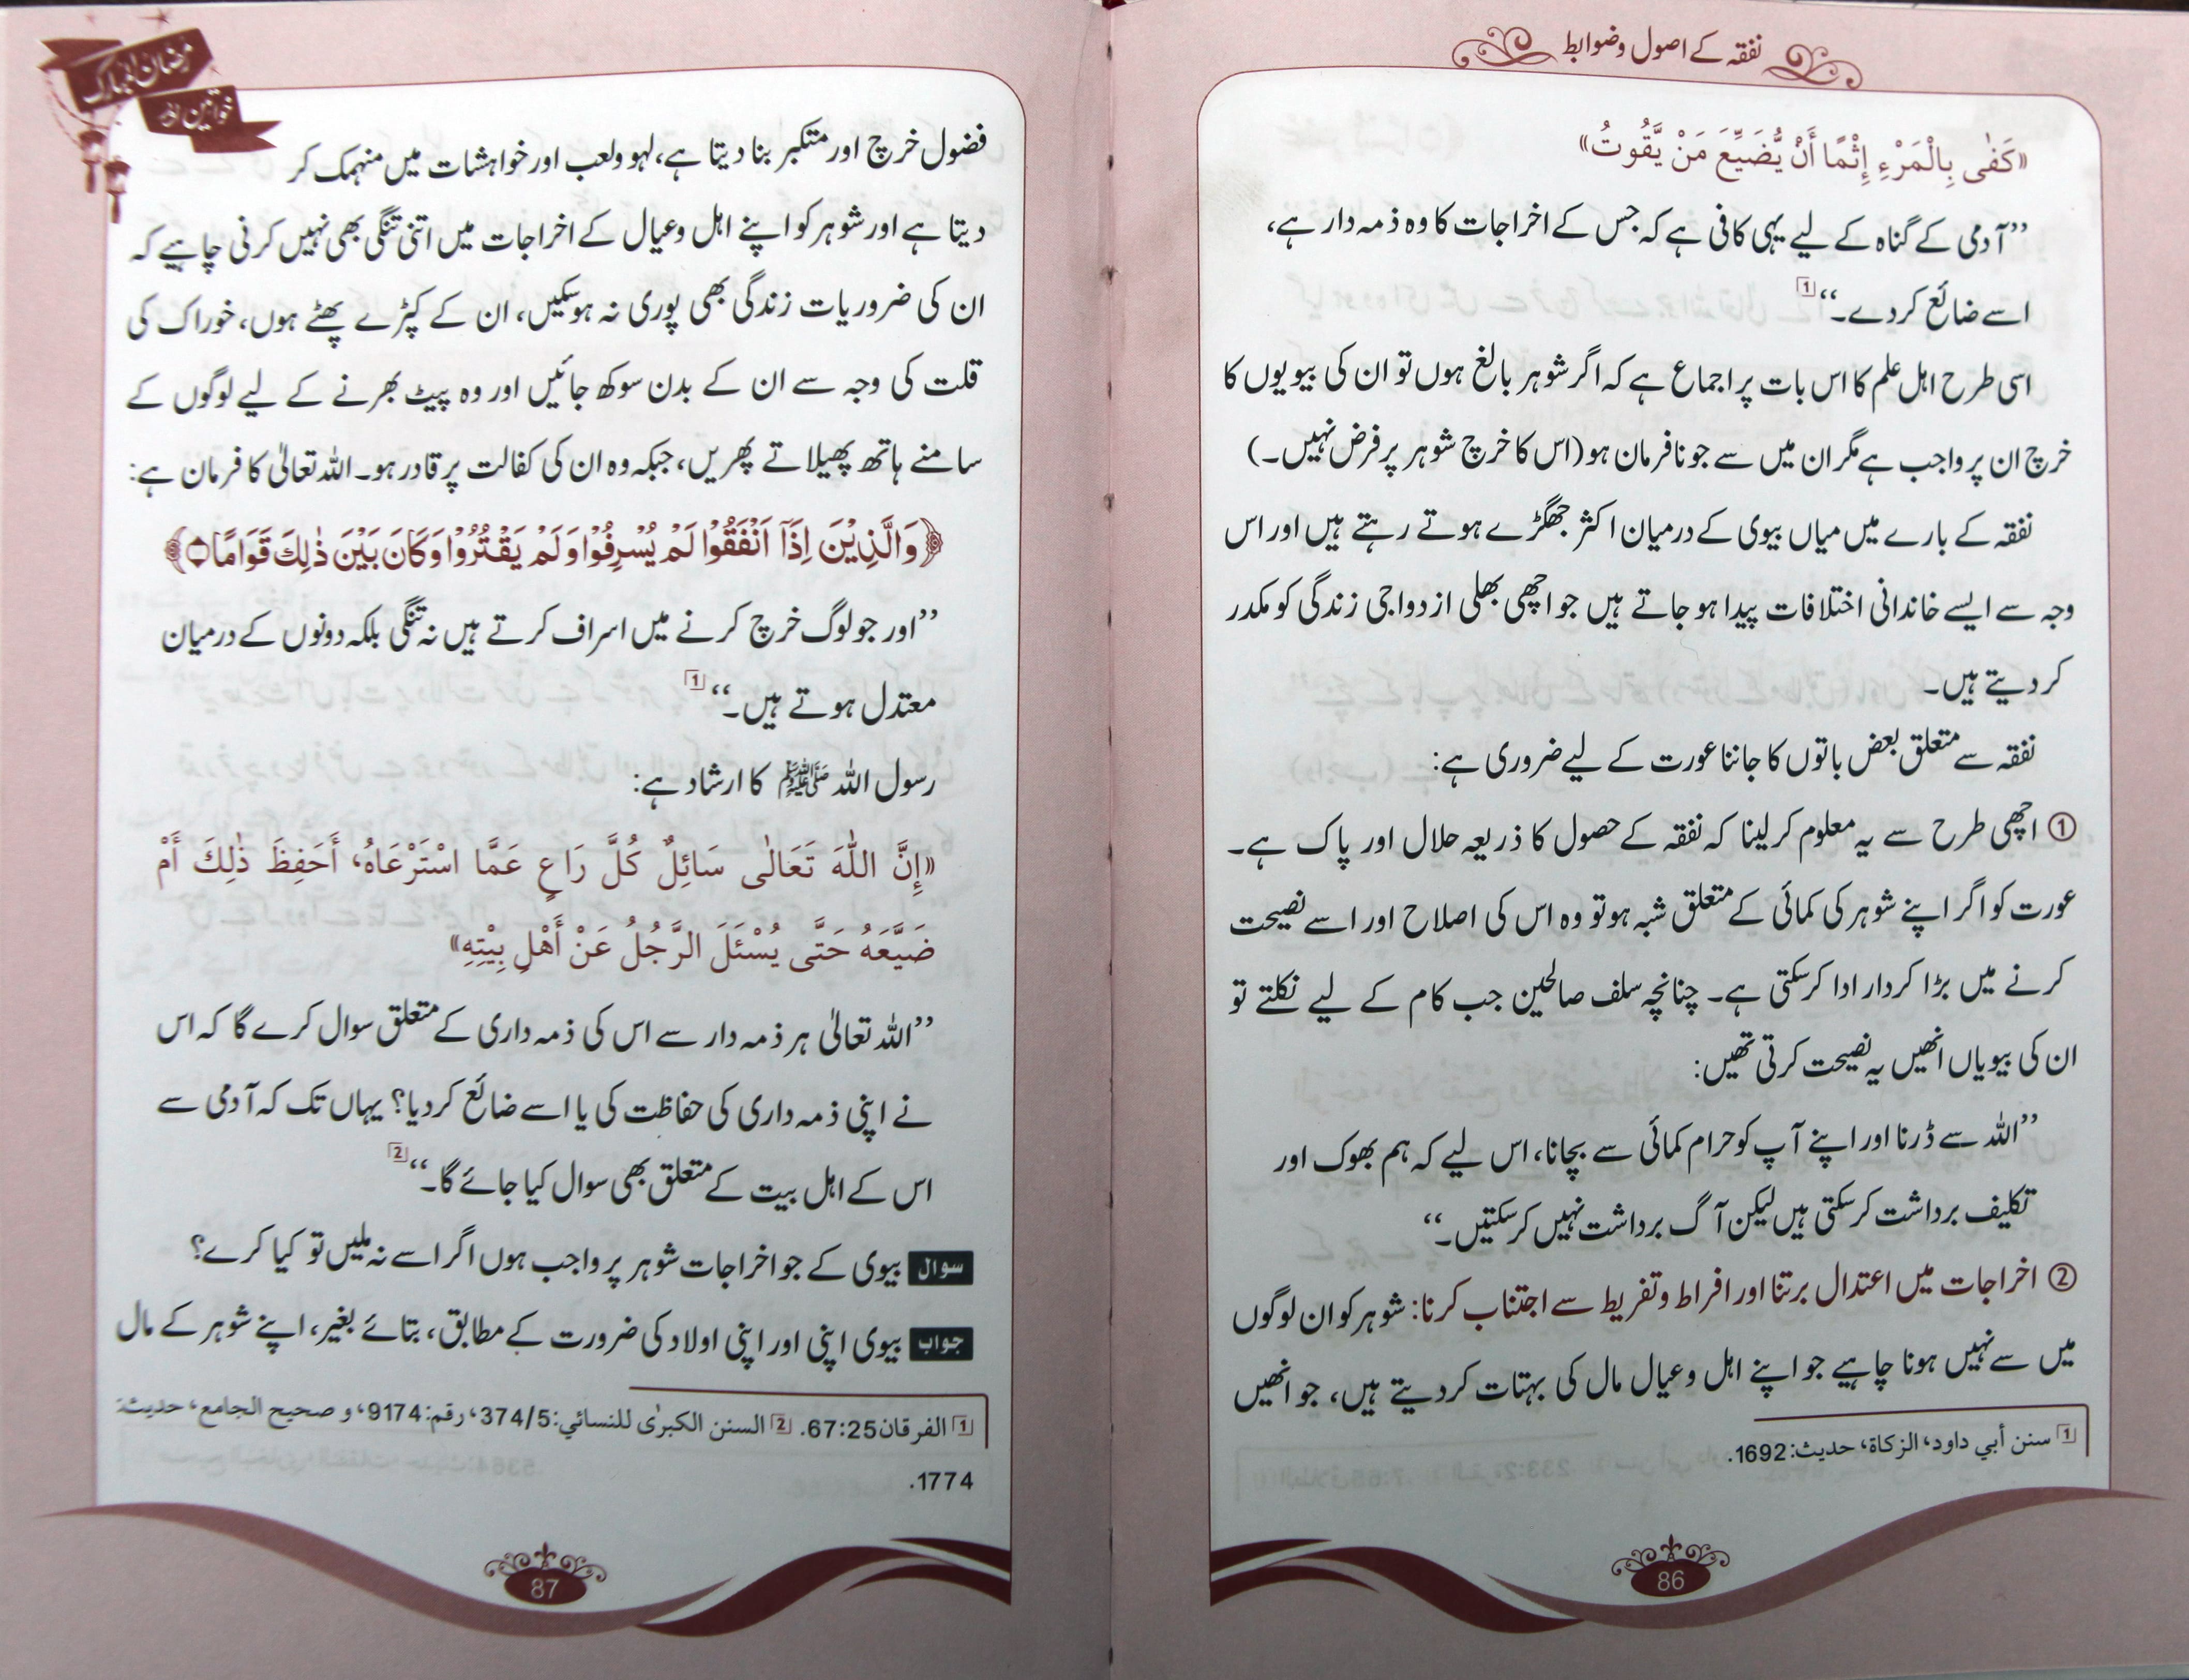 نفقہ کے اصول و ضوابط
«كَفٰى بِالْمَرْءِ إِثْمًا أَنْ يُّضَيِّعَ مَنْ يَّقُوتُ»
’’آدمی کے گناہ کے لیے یہی کافی ہے کہ جس کے اخراجات کا وہ ذمہ دار ہے،
اسے ضائع کر دے۔‘‘ 1
اسی طرح اہل علم کا اس بات پر اجماع ہے کہ اگر شوہر بالغ ہوں تو ان کی بیویوں کا
خرچ ان پر واجب ہے مگر ان میں سے جو نافرمان ہو (اس کا خرچ شوہر پر فرض نہیں۔)
نفقہ کے بارے میں میاں بیوی کے درمیان اکثر جھگڑے ہوتے رہتے ہیں اور اس
وجہ سے ایسے خاندانی اختلافات پیدا ہو جاتے ہیں جو اچھی بھلی ازدواجی زندگی کو مکدر
کر دیتے ہیں۔
نفقہ سے متعلق بعض باتوں کا جاننا عورت کے لیے ضروری ہے:
① اچھی طرح سے یہ معلوم کر لینا کہ نفقہ کے حصول کا ذریعہ حلال اور پاک ہے۔
عورت کو اگر اپنے شوہر کی کمائی کے متعلق شبہ ہو تو وہ اس کی اصلاح اور اسے نصیحت
کرنے میں بڑا کردار ادا کر سکتی ہے۔ چنانچہ سلف صالحین جب کام کے لیے نکلتے تو
ان کی بیویاں انھیں یہ نصیحت کرتی تھیں:
’’اللہ سے ڈرنا اور اپنے آپ کو حرام کمائی سے بچانا، اس لیے کہ ہم بھوک اور
تکلیف برداشت کر سکتی ہیں لیکن آگ برداشت نہیں کر سکتیں۔‘‘
② اخراجات میں اعتدال برتنا اور افراط و تفریط سے اجتناب کرنا: شوہر کو ان لوگوں
میں سے نہیں ہونا چاہیے جو اپنے اہل و عیال مال کی بہتات کر دیتے ہیں، جو انھیں
1 سنن أبي داود، الزكاة، حديث:1692.
86
رمضان المبارک
خواتین اور
فضول خرچ اور متکبر بنا دیتا ہے، لہو و لعب اور خواہشات میں منہمک کر
دیتا ہے اور شوہر کو اپنے اہل و عیال کے اخراجات میں اتنی تنگی بھی نہیں کرنی چاہیے کہ
ان کی ضروریات زندگی بھی پوری نہ ہو سکیں، ان کے کپڑے پھٹے ہوں، خوراک کی
قلت کی وجہ سے ان کے بدن سوکھ جائیں اور وہ پیٹ بھرنے کے لیے لوگوں کے
سامنے ہاتھ پھیلاتے پھریں، جبکہ وہ ان کی کفالت پر قادر ہو۔ اللہ تعالیٰ کا فرمان ہے:
﴿وَالَّذِيْنَ اِذَآ اَنْفَقُوْا لَمْ يُسْرِفُوْا وَلَمْ يَقْتُرُوْا وَكَانَ بَيْنَ ذٰلِكَ قَوَامًا﴾
’’اور جو لوگ خرچ کرنے میں اسراف کرتے ہیں نہ تنگی بلکہ دونوں کے درمیان
معتدل ہوتے ہیں۔‘‘ 1
رسول اللہ ﷺ کا ارشاد ہے:
«إِنَّ اللّٰهَ تَعَالٰى سَائِلٌ كُلَّ رَاعٍ عَمَّا اسْتَرْعَاهُ، أَحَفِظَ ذٰلِكَ أَمْ
ضَيَّعَهُ حَتَّى يُسْئَلَ الرَّجُلُ عَنْ أَهْلِ بِيْتِهِ»
’’اللہ تعالیٰ ہر ذمہ دار سے اس کی ذمہ داری کے متعلق سوال کرے گا کہ اس
نے اپنی ذمہ داری کی حفاظت کی یا اسے ضائع کر دیا؟ یہاں تک کہ آدمی سے
اس کے اہل بیت کے متعلق بھی سوال کیا جائے گا۔‘‘ 2
سوال بیوی کے جو اخراجات شوہر پر واجب ہوں اگر اسے نہ ملیں تو کیا کرے؟
جواب بیوی اپنی اور اپنی اولاد کی ضرورت کے مطابق، بتائے بغیر، اپنے شوہر کے مال
1 الفرقان67:25. 2 السنن الكبرٰى للنسائي:374/5، رقم:9174، و صحيح الجامع، حديث:
1774.
87